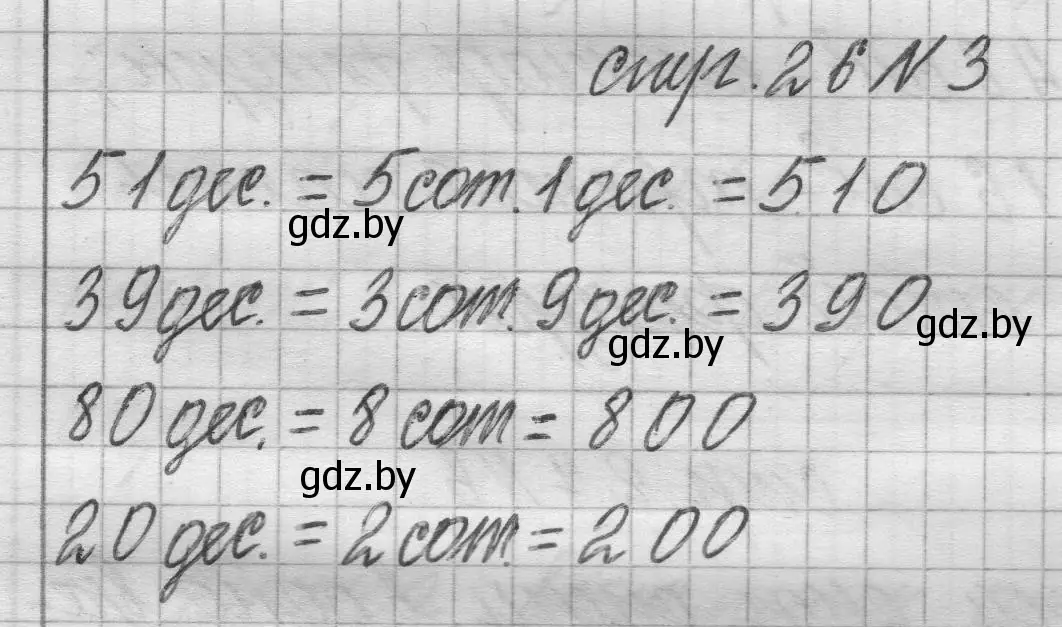 стр. 26 N 3
51 дес. = 5 сот. 1 дес. = 510
gdz.by
39 дес. = 3 сот. 9 дес. = 390
gdz.by
gdz.by
80 дес. = 8 сот = 800
gdz.by
20 дес. = 2 сот. = 200